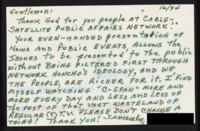 12/94
Gentlemen:
Thank God for you people at Cable,
Satellite Public Affairs Network.
Your even-handed presentation of
News and Public Events allows the
issues to be presented to the public
without being filtered first through
network honcho's ideology, and we
the people are richer for it. I find
myself watching "C-SPAN" more and
more every day and less and less of
the rest of that vast wasteland of
regular T.V. Please don't change a
thing! Thank you! Sincerely,